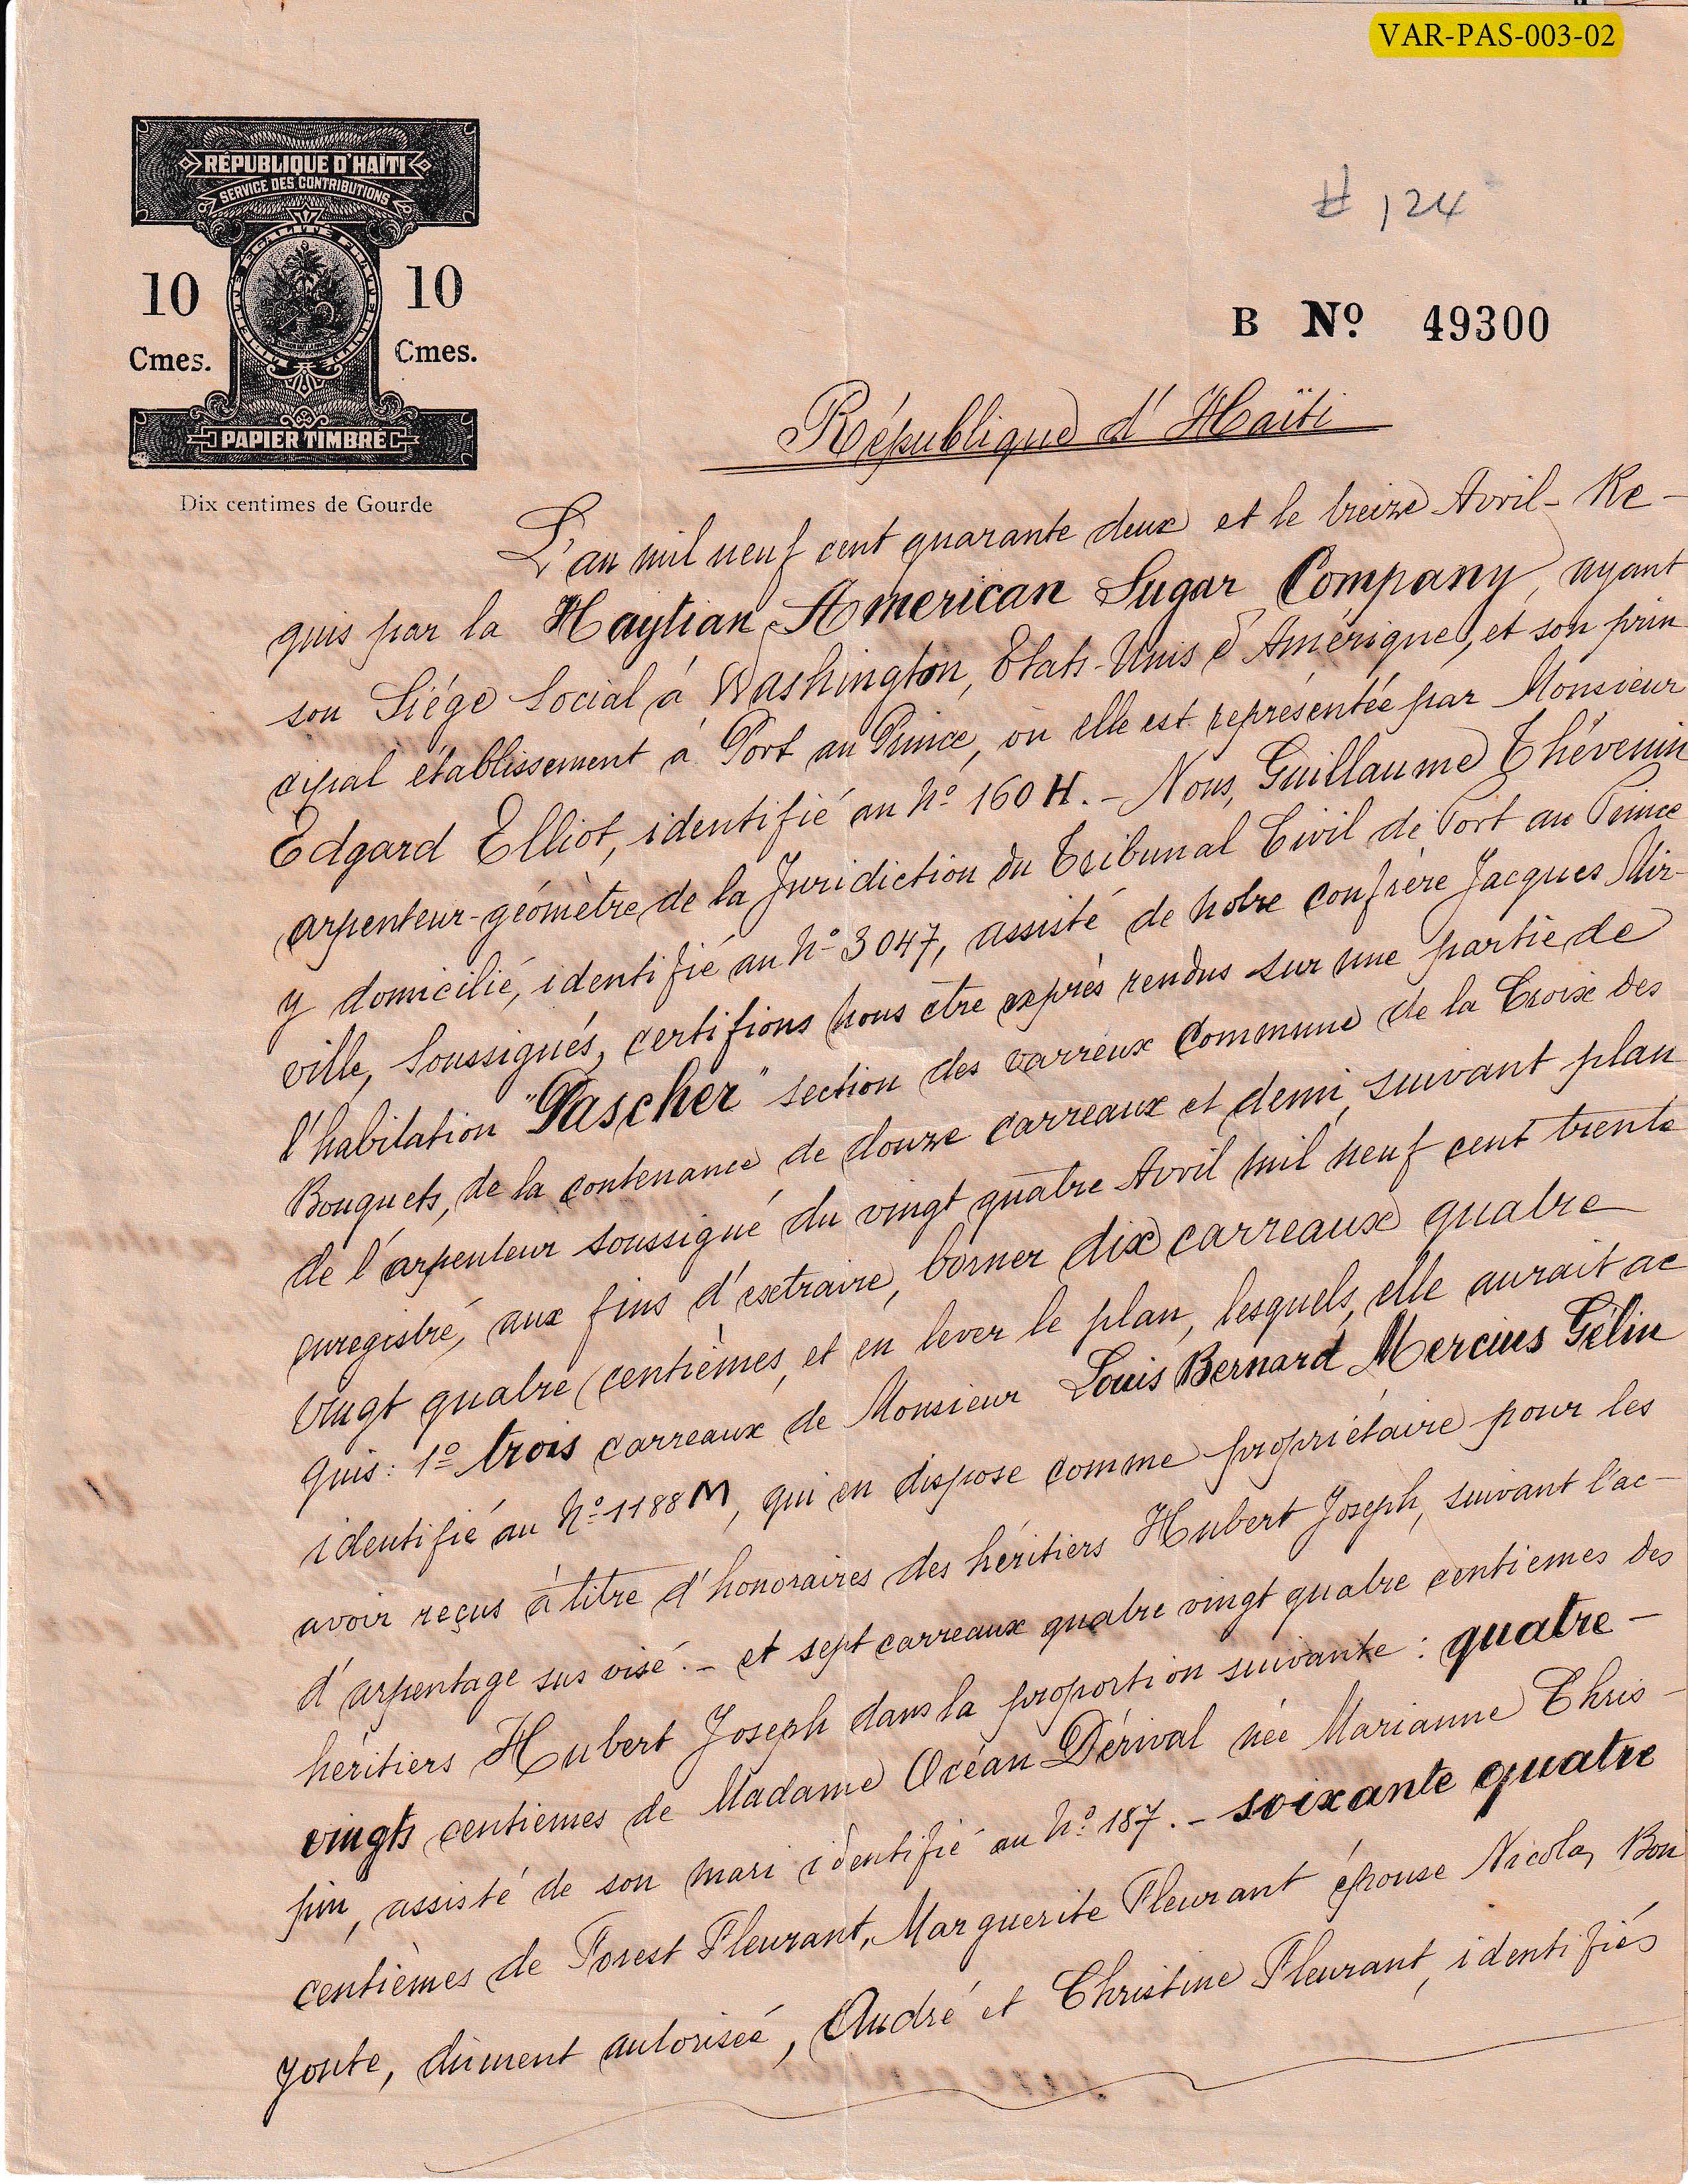 VAR-PAS-003-02
RÉPUBLIQUE D'HAÏTI
SERVICE DES CONTRIBUTIONS
# 124
10 10
Cmes. Cmes.
B Nº 49300
PAPIER TIMBRÉ
Dix centimes de Gourde
République d'Haïti
L'an mil neuf cent quarante deux et le treize Avril - Re-
quis par la Haytian American Sugar Company, ayant
son Siége Social à Washington, Etats-Unis d'Amérique, et son prin
cipal établissement à Port au Prince, où elle est représentée par Monsieur
Edgard Elliot, identifié au Nº 160 H. - Nous, Guillaume Thévenin
arpenteur-géomètre de la Juridiction du Tribunal Civil de Port au Prince
y domicilié, identifié au Nº 3047, assisté de notre confrère Jacques Mir-
ville, Soussignés, certifions nous être exprès rendus sur une partie de
l'habitation "Pascher" section des Varreux Commune de la Croix des
Bouquets, de la contenance de douze carreaux et demi, suivant plan
de l'arpenteur soussigné du vingt quatre Avril mil neuf cent trente
enregistré, aux fins d'extraire, borner dix carreaux quatre
vingt quatre centièmes, et en lever le plan, lesquels, elle aurait ac
quis: 1º trois carreaux de Monsieur Louis Bernard Mercius Gélin
identifié au Nº 1188 M, qui en dispose comme propriétaire pour les
avoir reçus à titre d'honoraires des héritiers Hubert Joseph, suivant l'ac-
d'arpentage sus visé. - et sept carreaux quatre vingt quatre centiemes des
héritiers Hubert Joseph dans la proportion suivante: quatre-
vingts centiemes de Madame Océan Dérival née Marianne Chris-
pin, assisté de son mari identifié au Nº 187. - soixante quatre
centièmes de Forest Fleurant, Marguerite Fleurant épouse Nicolas Bon
joute, dûment autorisée, André et Christine Fleurant, identifiés